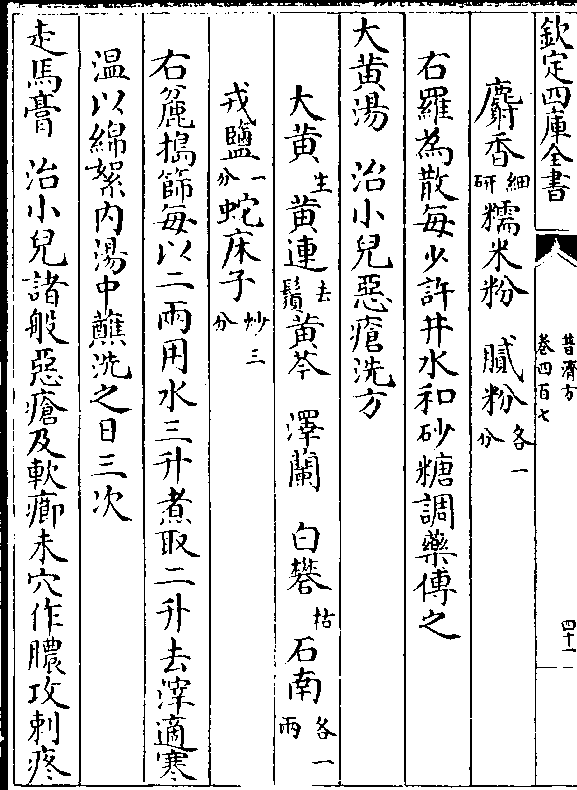 欽定四庫全書
普濟方
卷四百七
四十一
麝香細研糯米粉 膩粉各一分
右羅為散每少許井水和砂糖調藥傅之
大黄湯 治小兒惡瘡洗方
大黄生黄連去鬚黄芩 澤蘭 白礬枯石南各一兩
戎鹽一分蛇床子炒三分
右麄搗篩每以二兩用水三升煮取二升去滓適寒
温以綿絮内湯中蘸洗之日三次
走馬膏 治小兒諸般惡瘡及軟癤未穴作膿攻刺疼